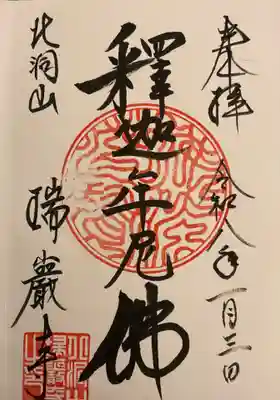 奉拝 令和八年 一月三日
釋迦牟尼佛
北洞山
瑞巖寺